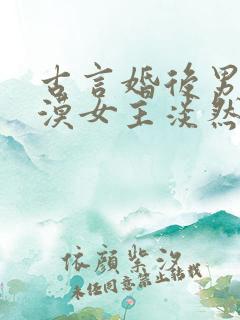 古言婚后男
漠女主淡然
依颜紫汐
未经同意禁止转载